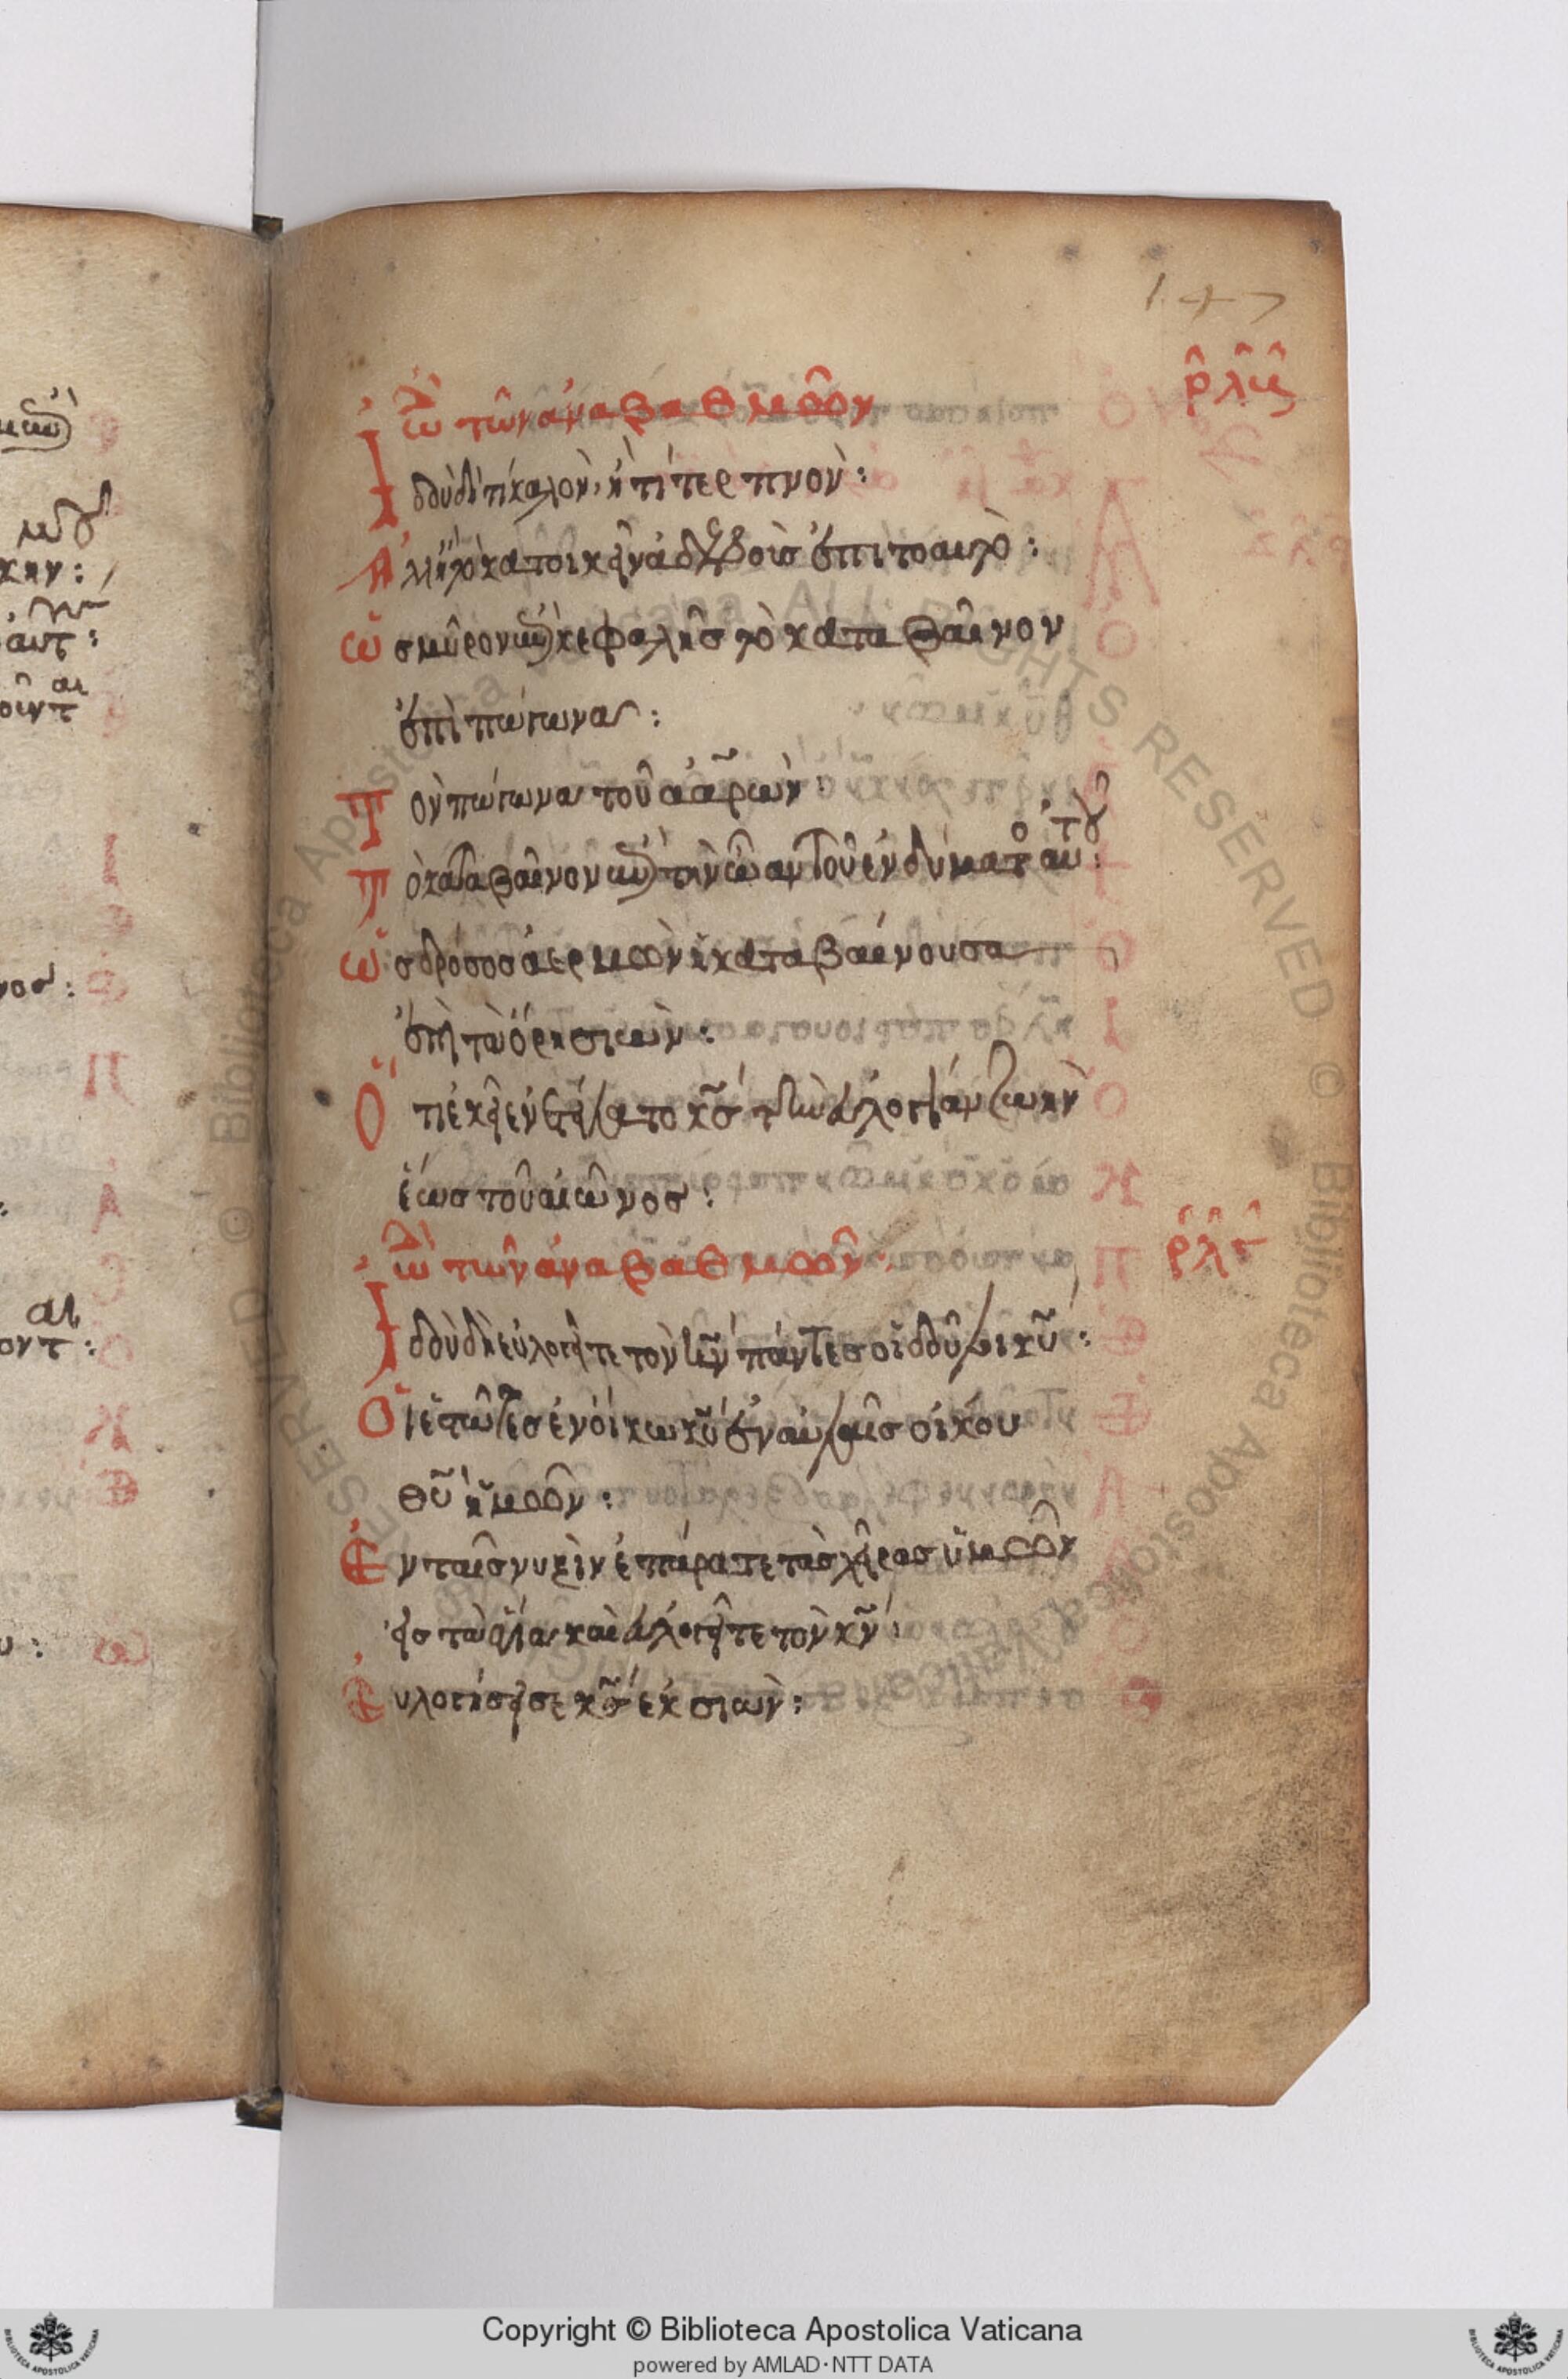 147
ρλβ
ὠδὴ τῶν ἀναβαθμῶν
Ἰδοὺ δὴ τί καλὸν, ἢ τί τερπνὸν:
Ἀλλἢ τὸ κατοικεῖν ἀδελφοὺς ἐπιτοαυτὸ:
Ὡς μῦρον ἐπὶ κεφαλῆς τὸ καταβαῖνον
ἐπὶ πώγωνα:
Τὸν πώγωνα τοῦ ἀαρὼν
Τὸ καταβαῖνον ἐπὶ τὴν ὤαν τοῦ ἐνδύματος αὐτοῦ:
Ὡς δρόσος ἀερμὼν ἡ καταβαίνουσα
ἐπὶ τὰ ὄρη σιὼν:
Ὅτι ἐκεῖ ἐνετείλατο κς τὴν εὐλογίαν ζωὴν
ἕως τοῦ αἰῶνος:
ρλγ
ὠδὴ τῶν ἀναβαθμῶν
Ἰδοὺ δὴ εὐλογεῖτε τὸν κν πάντες οἱ δοῦλοι κυ:
Οἱ ἑστῶτες ἐν οἴκω κυ ἐν αὐλαῖς οἴκου
θυ ἡμῶν:
Ἐν ταῖς νυξὶν ἐπάρατε τὰς χεῖρας ὑμῶν
εἰς τὰ ἅγια καὶ εὐλογεῖτε τὸν κν:
Εὐλογήσει σε κς ἐκ σιὼν:
Copyright © Biblioteca Apostolica Vaticana
powered by AMLAD·NTT DATA